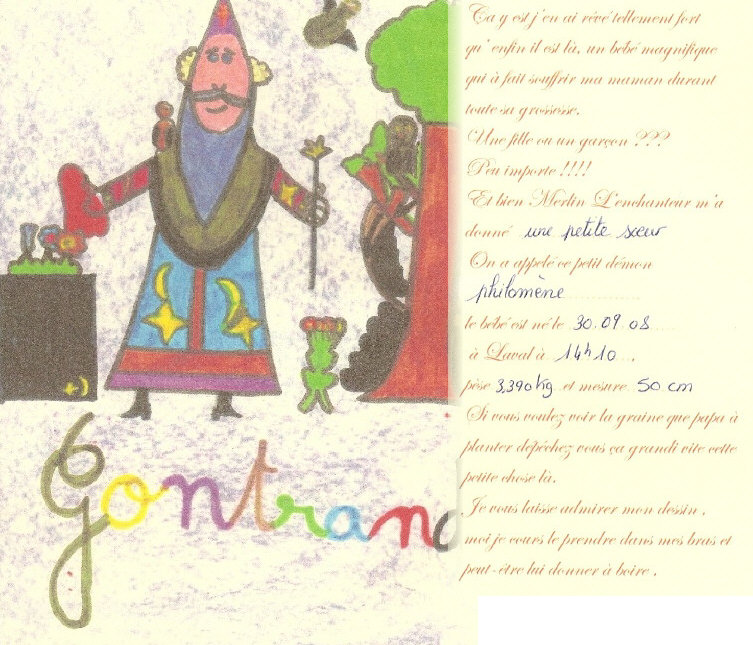 Ça y est j'en ai rêvé tellement fort
qu'enfin il est là, un bébé magnifique
qui à fait souffrir ma maman durant
toute sa grossesse.
Une fille ou un garçon ???
Peu importe !!!!
Et bien Merlin L'enchanteur m'a
donné une petite sœur
On a appelé ce petit démon
philomène
le bébé est né le 30.09.08
à Laval à 14h10
pèse 3,390kg et mesure 50 cm
Si vous voulez voir la graine que papa à
planter dépéchez vous ça grandi vite cette
petite chose là.
Je vous laisse admirer mon dessin,
moi je cours le prendre dans mes bras et
peut-être lui donner à boire.
Gontran